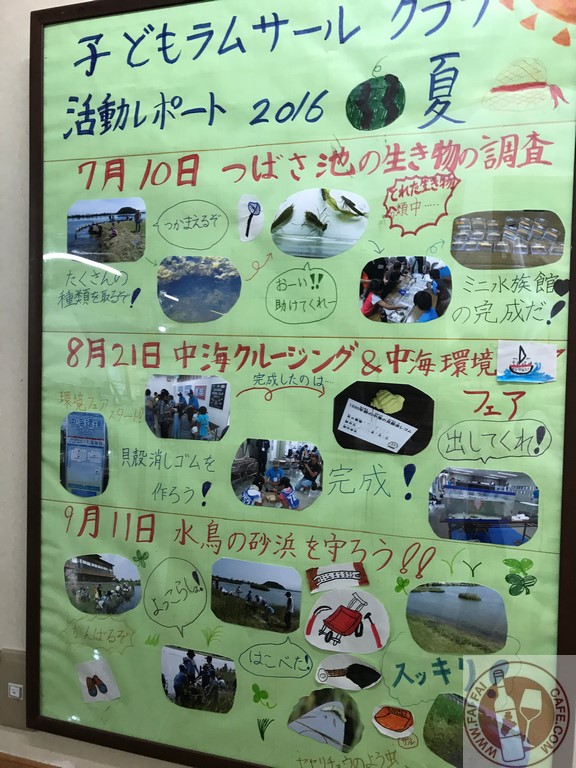 子どもラムサール クラブ
活動レポート 2016 夏
7月10日 つばさ池の生き物の調査
つかまえるぞ
とれた生き物
分類中……
たくさんの
種類を取るぞ!
おーい!!
助けてくれー
ミニ水族館
の完成だ!
8月21日 中海クルージング&中海環境
フェア
環境フェア
スタート!!
完成したのは…
貝殻消しゴムを
作ろう!
完成!
出してくれ!
9月11日 水鳥の砂浜を守ろう!!
がんばるぞ
よっこらしょ!
はこべた!
スッキリ
ヤリチュウのよう虫
WWW.FAIFAICAFE.COM